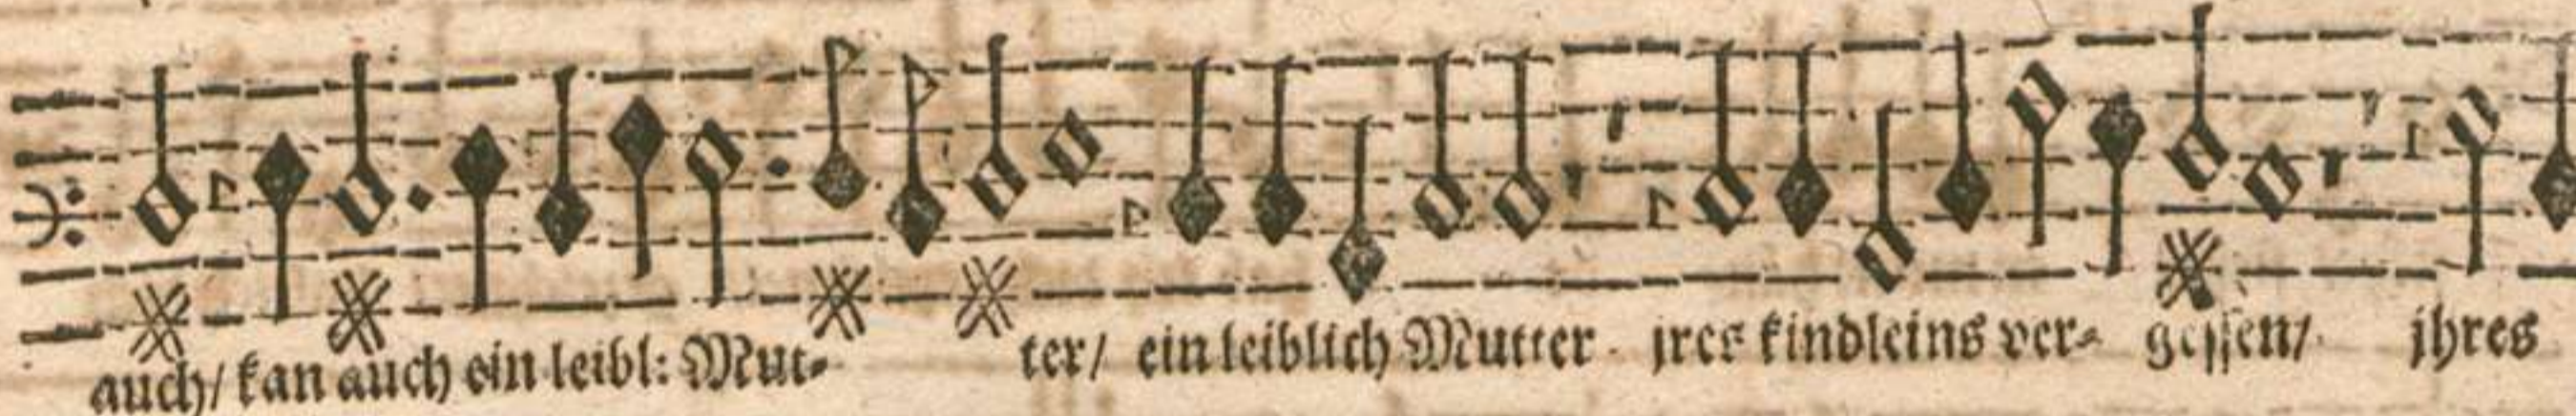 auch/ kan auch ein leibl: Mut- ter/ ein leiblich Mutter jres kindleins ver- gessen/ jhres